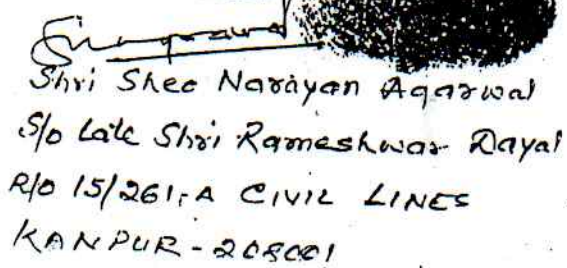 Shri Sheo Narayan Agarwal
S/o Late Shri Rameshwar Dayal
R/o 15/261-A CIVIL LINES
KANPUR - 208001